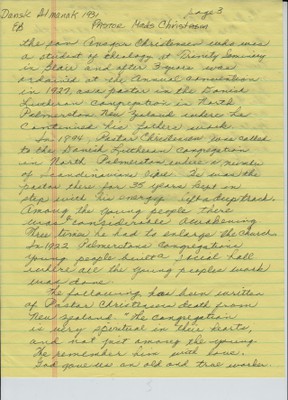 Dansk Almanak 1931 page 3
EB Pastor Mads Christensen
the son Ansgar Christensen who was
a student of theology at Trinity Seminary
in Blair and after 3 years was
ordained at the Annual Convention
in 1927, as a pastor in the Danish
Lutheran Congregation in North
Palmerston New Zealand where he
continued his fathers work.
In 1894, Pastor Christensen was called
to the Danish Lutheran Congregation
in North Palmerston where a number
of Scandinavians live. He was the
pastor there for 35 years kept in
step with his energy left a deep track.
Among the young people there
was considerable awakening
Three times he had to enlarge the church.
In 1922 Palmerstons Congregations
young people built a social hall
where all the young peoples work
was done.
The following has been written
of Pastor Christensen death from
New Zealand. "The Congregation
is very spiritual in their hearts,
and not just among the young.
We remember him with love.
God gave us an old and true worker.